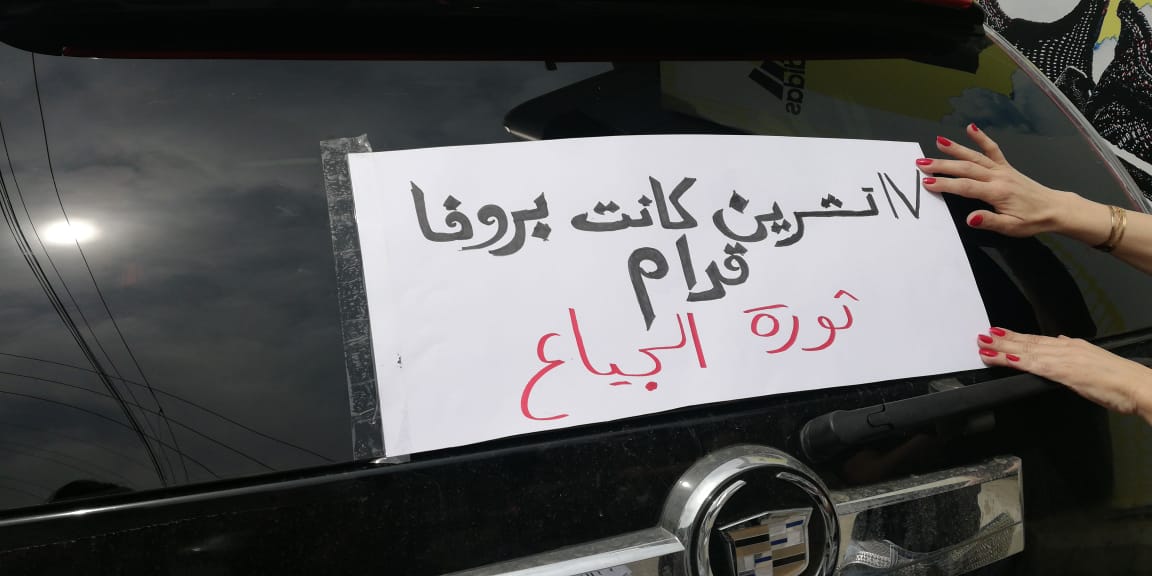 ١٧ تشرين كانت بروفا
قدام
ثورة الجياع
adidas